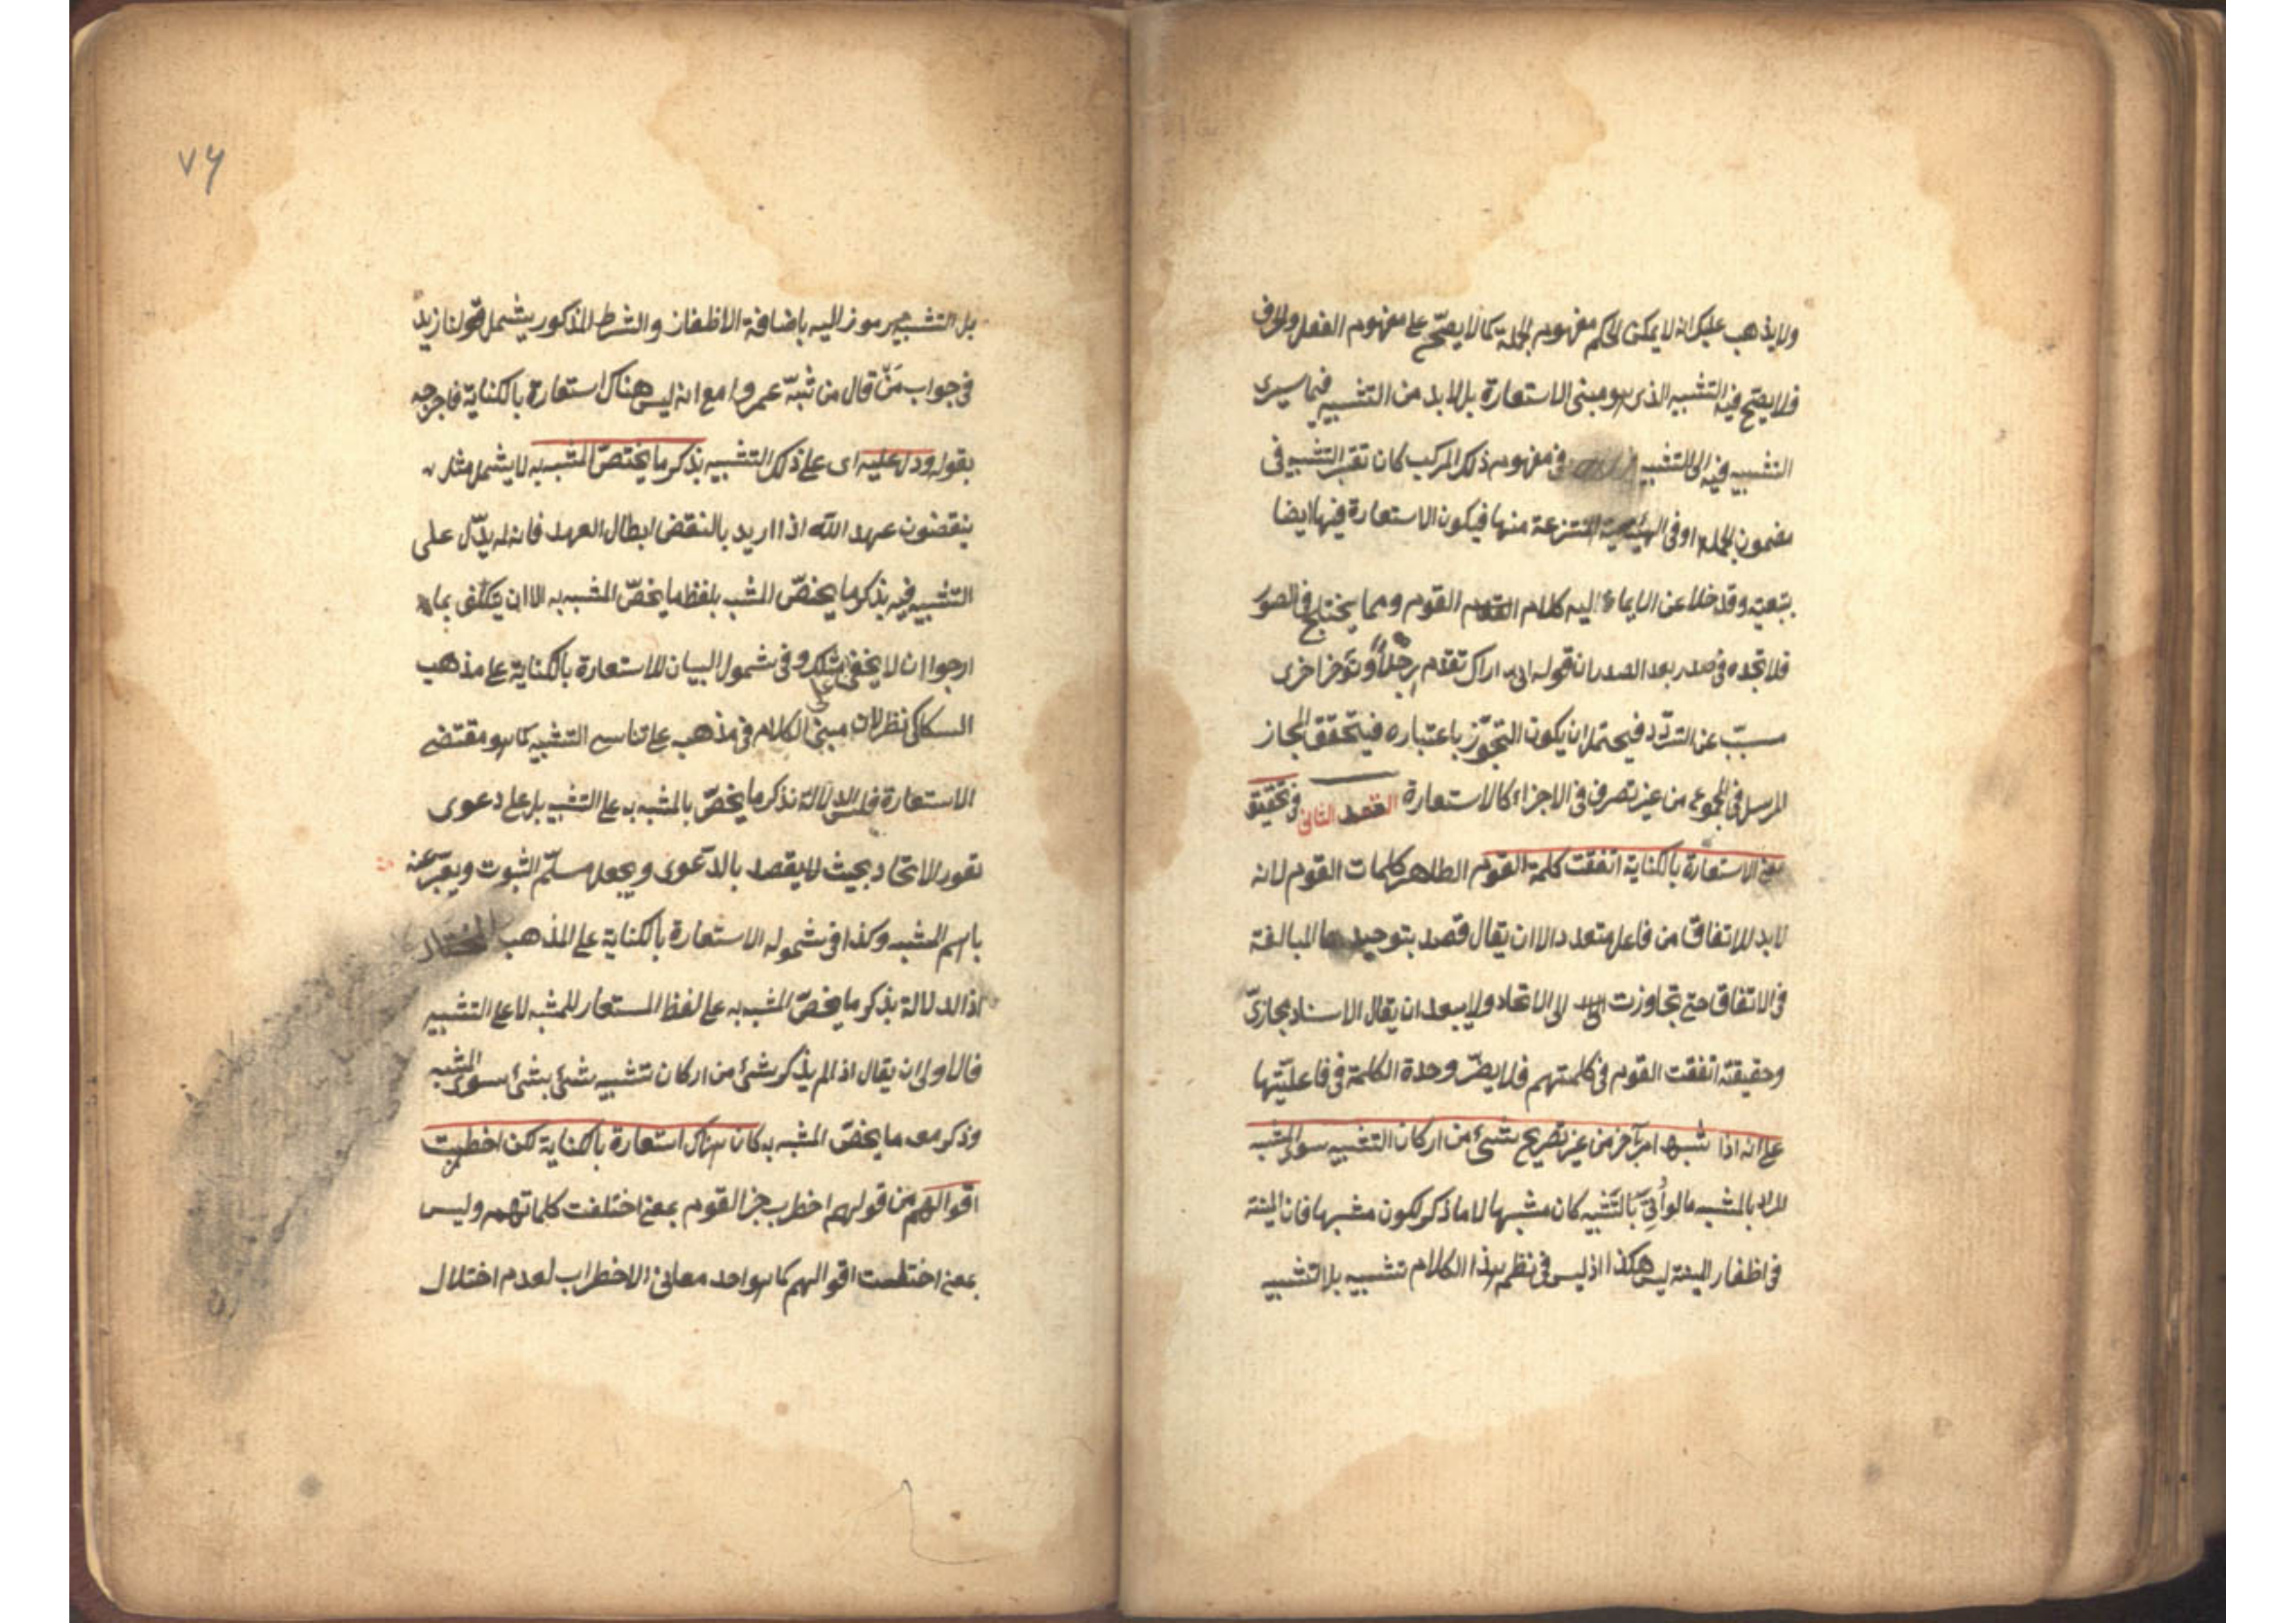 ولا يذهب عليك انه لا يمكن الحكم مفهوم الجملة كما لا يصح على مفهوم الفعل والحرف
فلا يصح فيه التشبيه الذى هو مبنى الاستعارة بل لابد من التشبيه فيما سيرى
التشبيه فيه الى التشبيه فى مفهوم ذلك المركب كان تعتبر التشبيه فى
مضمون الجملة او فى الهيئة المنتزعة منها فيكون الاستعارة فيها ايضا
بتعية وقد خلا عن الايماء اليه كلام القوم ومما يختلج فى الصدر
فلا تجده فى صدر بعد الصدر ان قوله انى اراك تقدم رجلا وتؤخر اخرى
مسبب عن التردد فيحتمل ان يكون التجوز باعتباره فيتحقق المجاز
المرسل فى المجموع من غير تصرف فى الاجزاء كالاستعارة العقد الثانى فى تحقيق
معنى الاستعارة بالكناية اتفقت كلمة القوم الظاهر كلمات القوم لانه
لابد للاتفاق من فاعل متعدد الا ان يقال قصد بتوحيدها المبالغة
فى الاتفاق حتى تجاوزت الى الاتحاد ولا يبعد ان يقال الاسناد مجازى
وحقيقته اتفقت القوم فى كلمتهم فلا يضر وحدة الكلمة فى فاعليتها
على انه اذا شبه امر بآخر من غير تصريح بشئ من اركان التشبيه سوى المشبه
المراد بالمشبه ما لو أتى بالتشبيه كان مشبها لا ما ذكر لكون مشبها فان المنية
فى اظفار المنية ليس هكذا اذ ليس فى نظم هذا الكلام تشبيه بلا تشبيه
٧٦
بل التشبيه مرموز اليه باضافة الاظفار والشرط المذكور يشمل قولنا زيد
فى جواب من قال من شبه عمروا مع انه ليس هناك استعارة بالكناية فاخرجه
بقوله ودل عليه اى على ذلك التشبيه بذكر ما يختص المشبه به لا يشمل مثل
ينقضون عهد الله اذا اريد بالنقض ابطال العهد فانه لم يدل على
التشبيه فيه بذكر ما يخص المشبه بلفظ ما يخص المشبه به الا ان يتكلف بما
ارجوا ان لا يخفى عليك وفى شمول البيان للاستعارة بالكناية على مذهب
السكاكى نظر لان مبنى الكلام فى مذهبه على تناسى التشبيه كما هو مقتضى
الاستعارة فليس الدلالة بذكر ما يخص بالمشبه به على التشبيه بل على دعوى
تقرر الاتحاد بحيث لا يقصد بالدعوى ويجعل مسلم الثبوت ويعبر عنه
باسم المشبه وكذا فى شموله الاستعارة بالكناية على المذهب المختار
اذ الدلالة بذكر ما يخص المشبه به على لفظ المستعار للمشبه لا على التشبيه
فالاولى ان يقال اذا لم يذكر شئ من اركان تشبيه شئ بشئ سوى المشبه
وذكر معه ما يخص المشبه به كان هناك استعارة بالكناية لكن اضطربت
اقوالهم من قولهم اضطرب خبر القوم بمعنى اختلفت كلماتهم وليس
بمعنى اختلت اقوالهم كما هو احد معانى الاضطراب لعدم اختلال